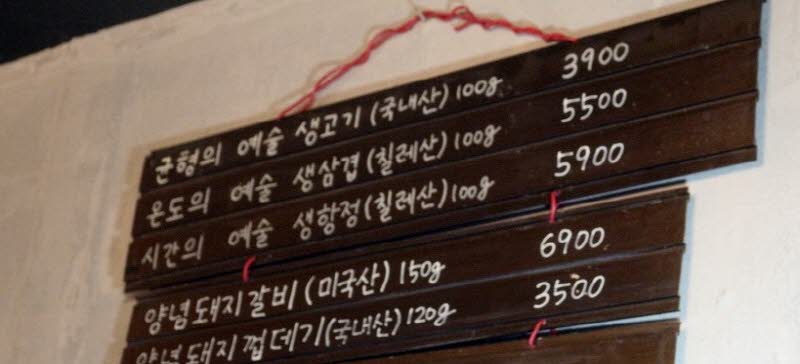 균형의 예술 생고기 (국내산) 100g 3900
온도의 예술 생삼겹 (칠레산) 100g 5500
시간의 예술 생항정 (칠레산) 100g 5900
양념돼지갈비 (미국산) 150g 6900
양념돼지껍데기 (국내산) 120g 3500